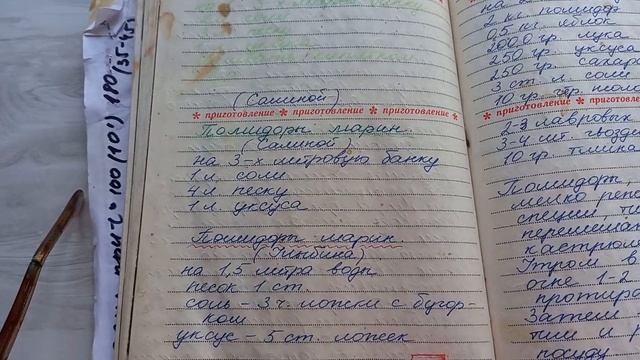 (Салиной)
* приготовление * приготовление * приготовление *
Помидоры марин.
(Салиной)
на 3-х литровую банку
1 л. соли
4 л. песку
1 л. уксуса
Помидоры марин.
на 1,5 литра воды
песок 1 ст.
соль - 3 ч. ложки с бугор-
ком
уксус - 5 ст. ложек
на
2 кг. помидор
0,5 кг. яблок
200,0 гр. лука
250 гр. уксуса
250 гр. сахара
3 ст. л. соли
10 гр.
* приготовление * приготовл
2-3 лавровых
3-4 шт. гвозд
10 гр. тмина
Помидоры,
мелко
специи,
перемешат
кастрюл
Утром в
огне 1-2
протира
Затем
посуду
100 (101) 110
(35-45)